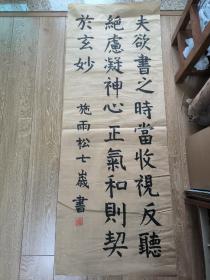 夫欲書之時當收視反聽
絕慮凝神心正氣和則契
於玄妙
施雨松七歲書